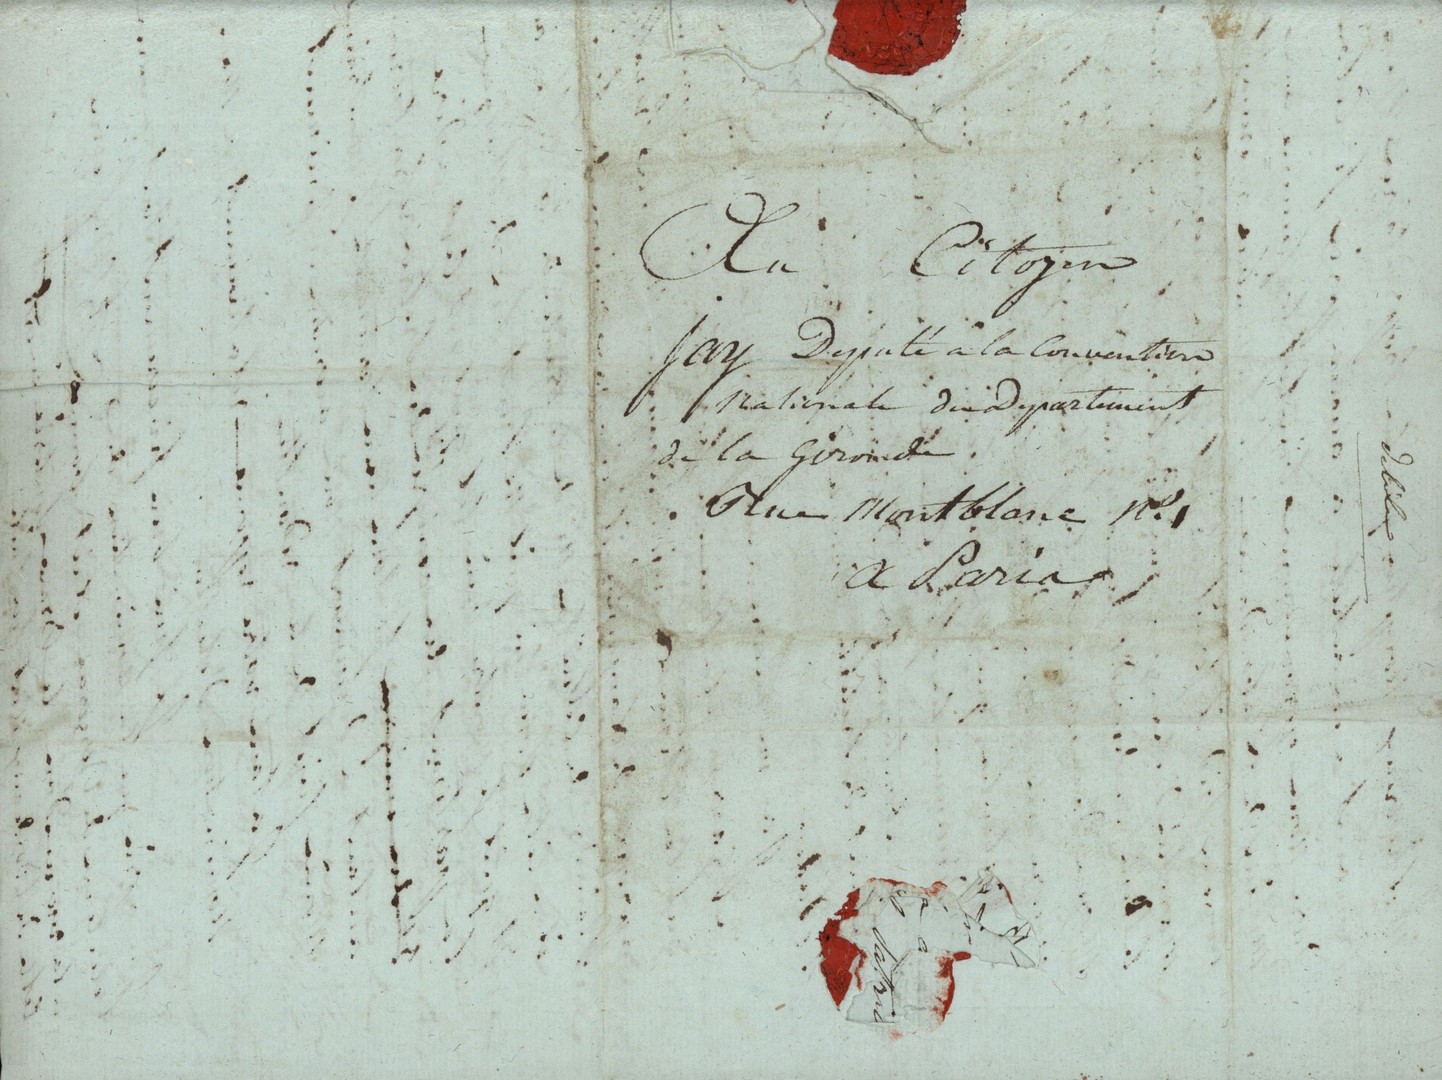 Au Citoyen
Jay Deputé a la Convention
nationale du Departement
de la Gironde
Rue Montblanc N°. 1
a Paris